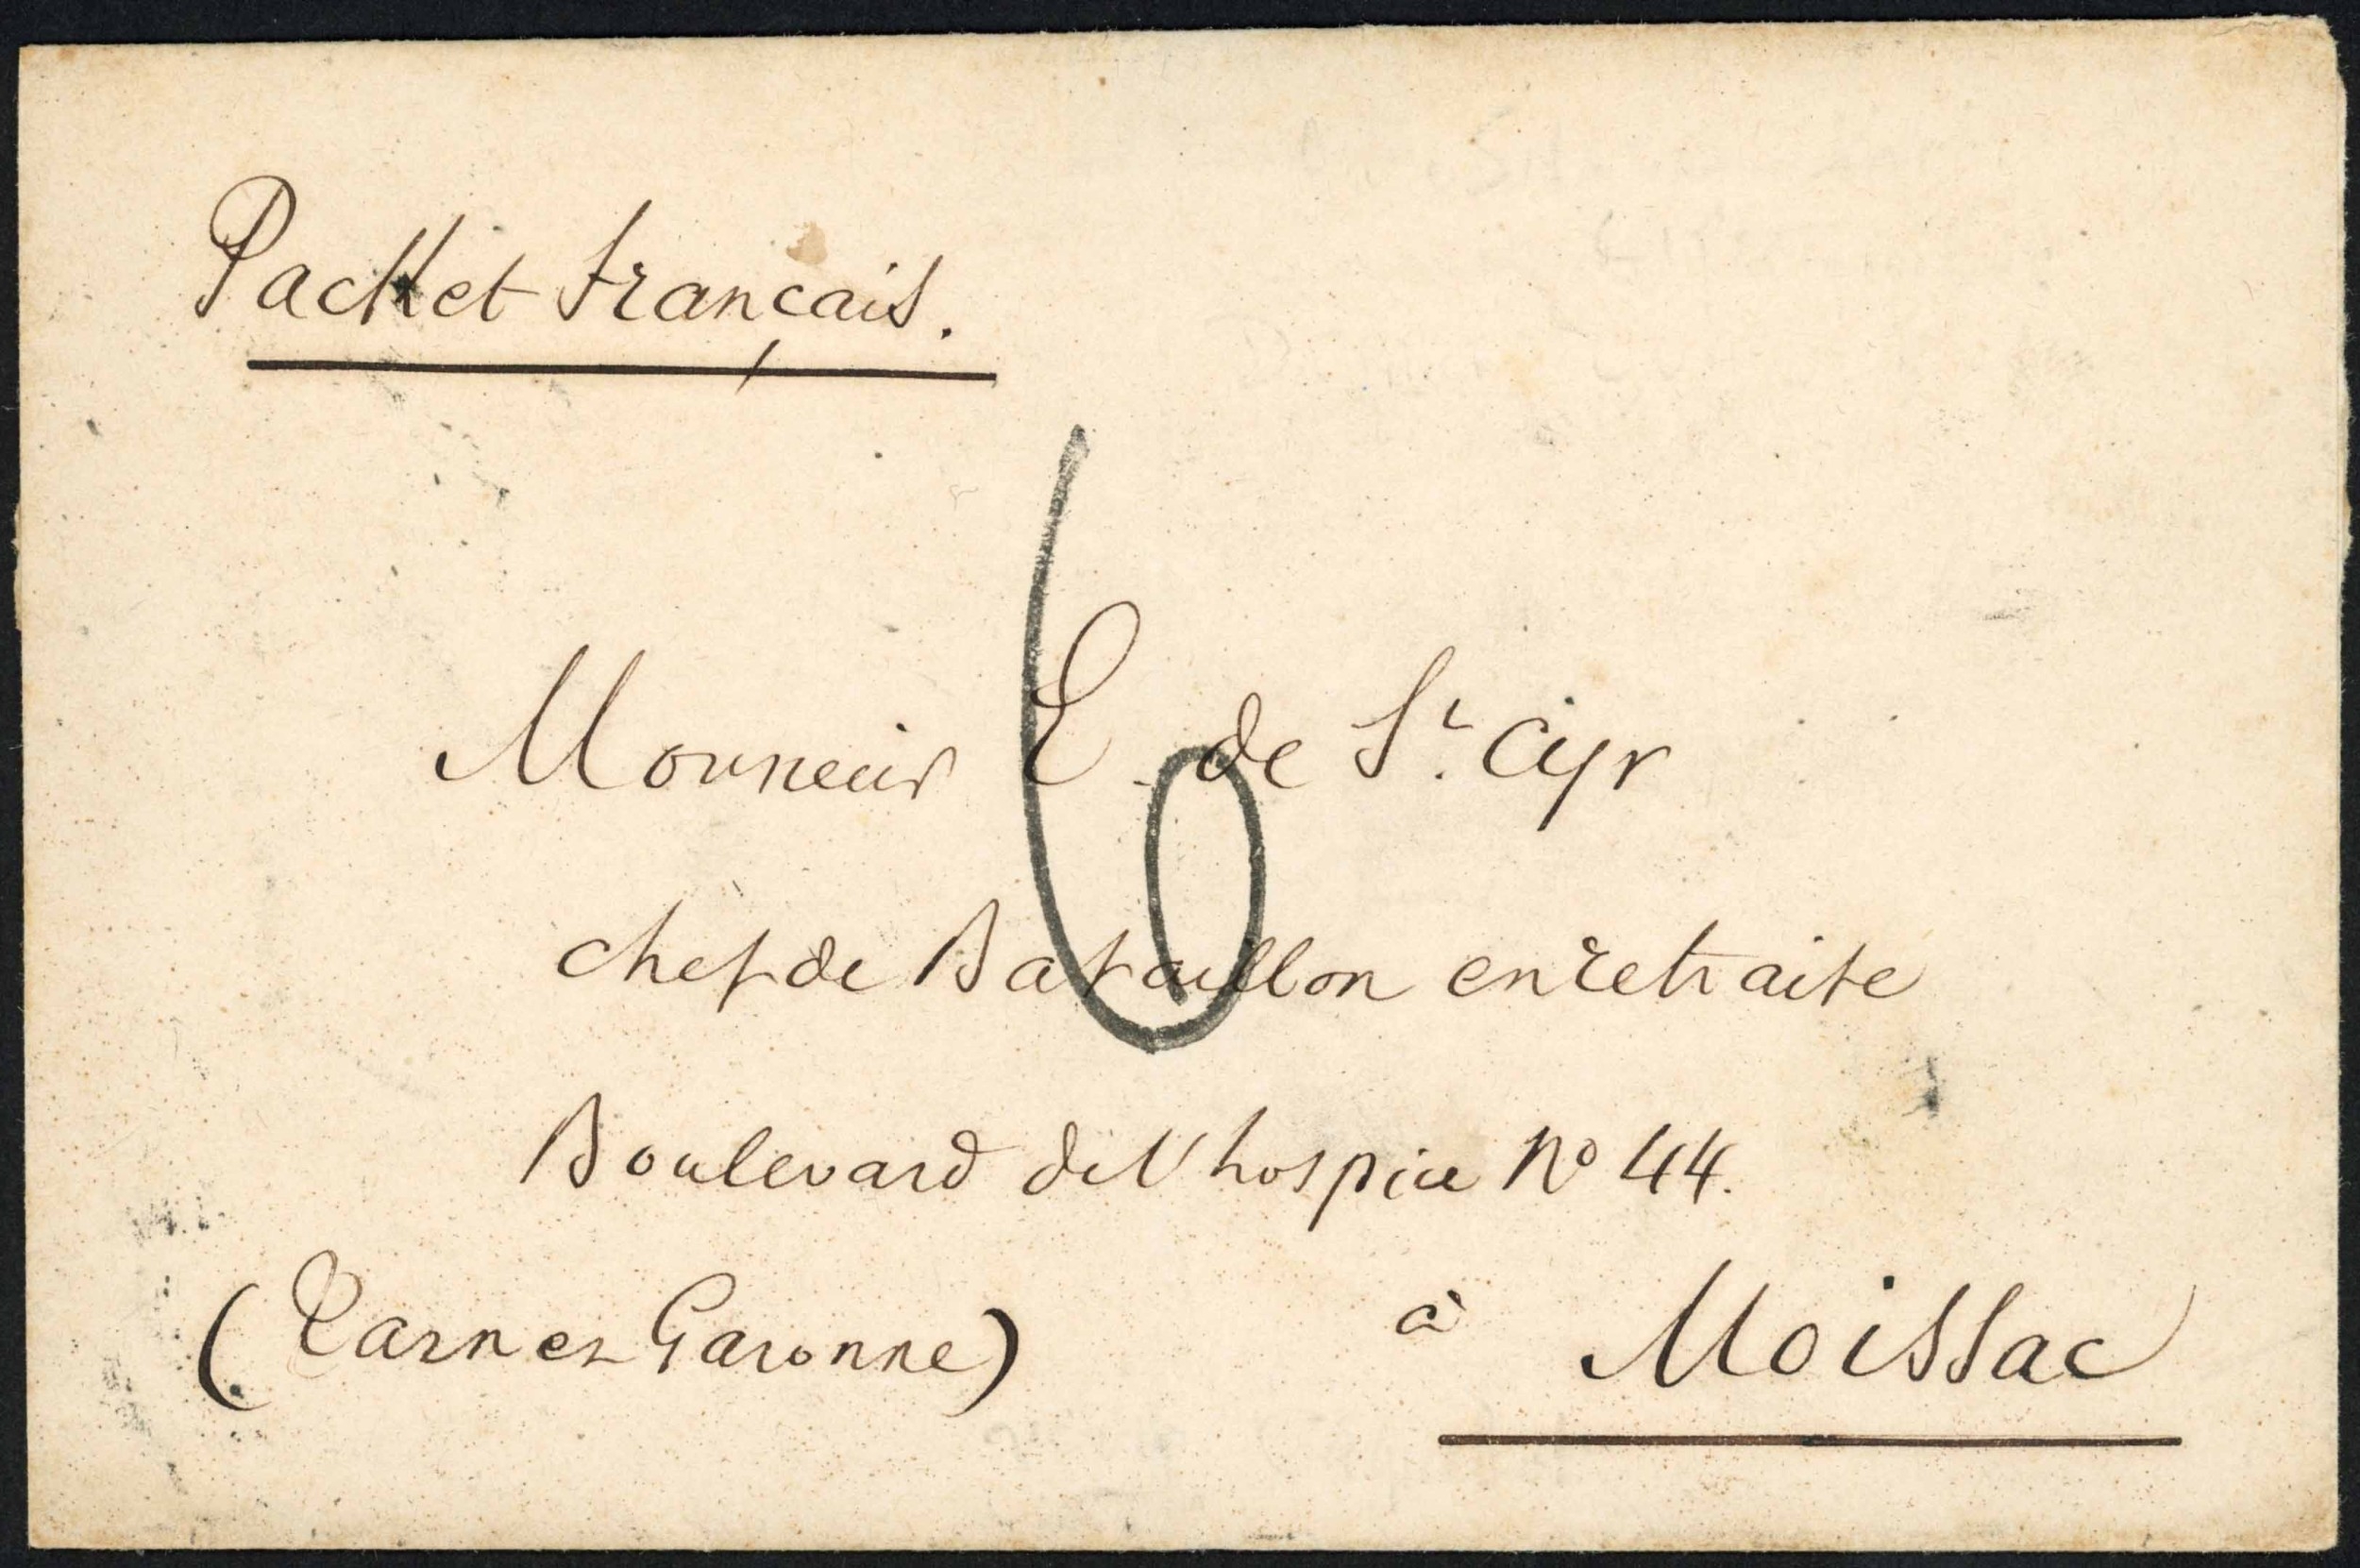 Packet français.
6
Monsieur E. de St. Cyr
chef de Bataillon en retraite
Boulevard de l'hospice No 44.
(Tarn et Garonne) à Moissac